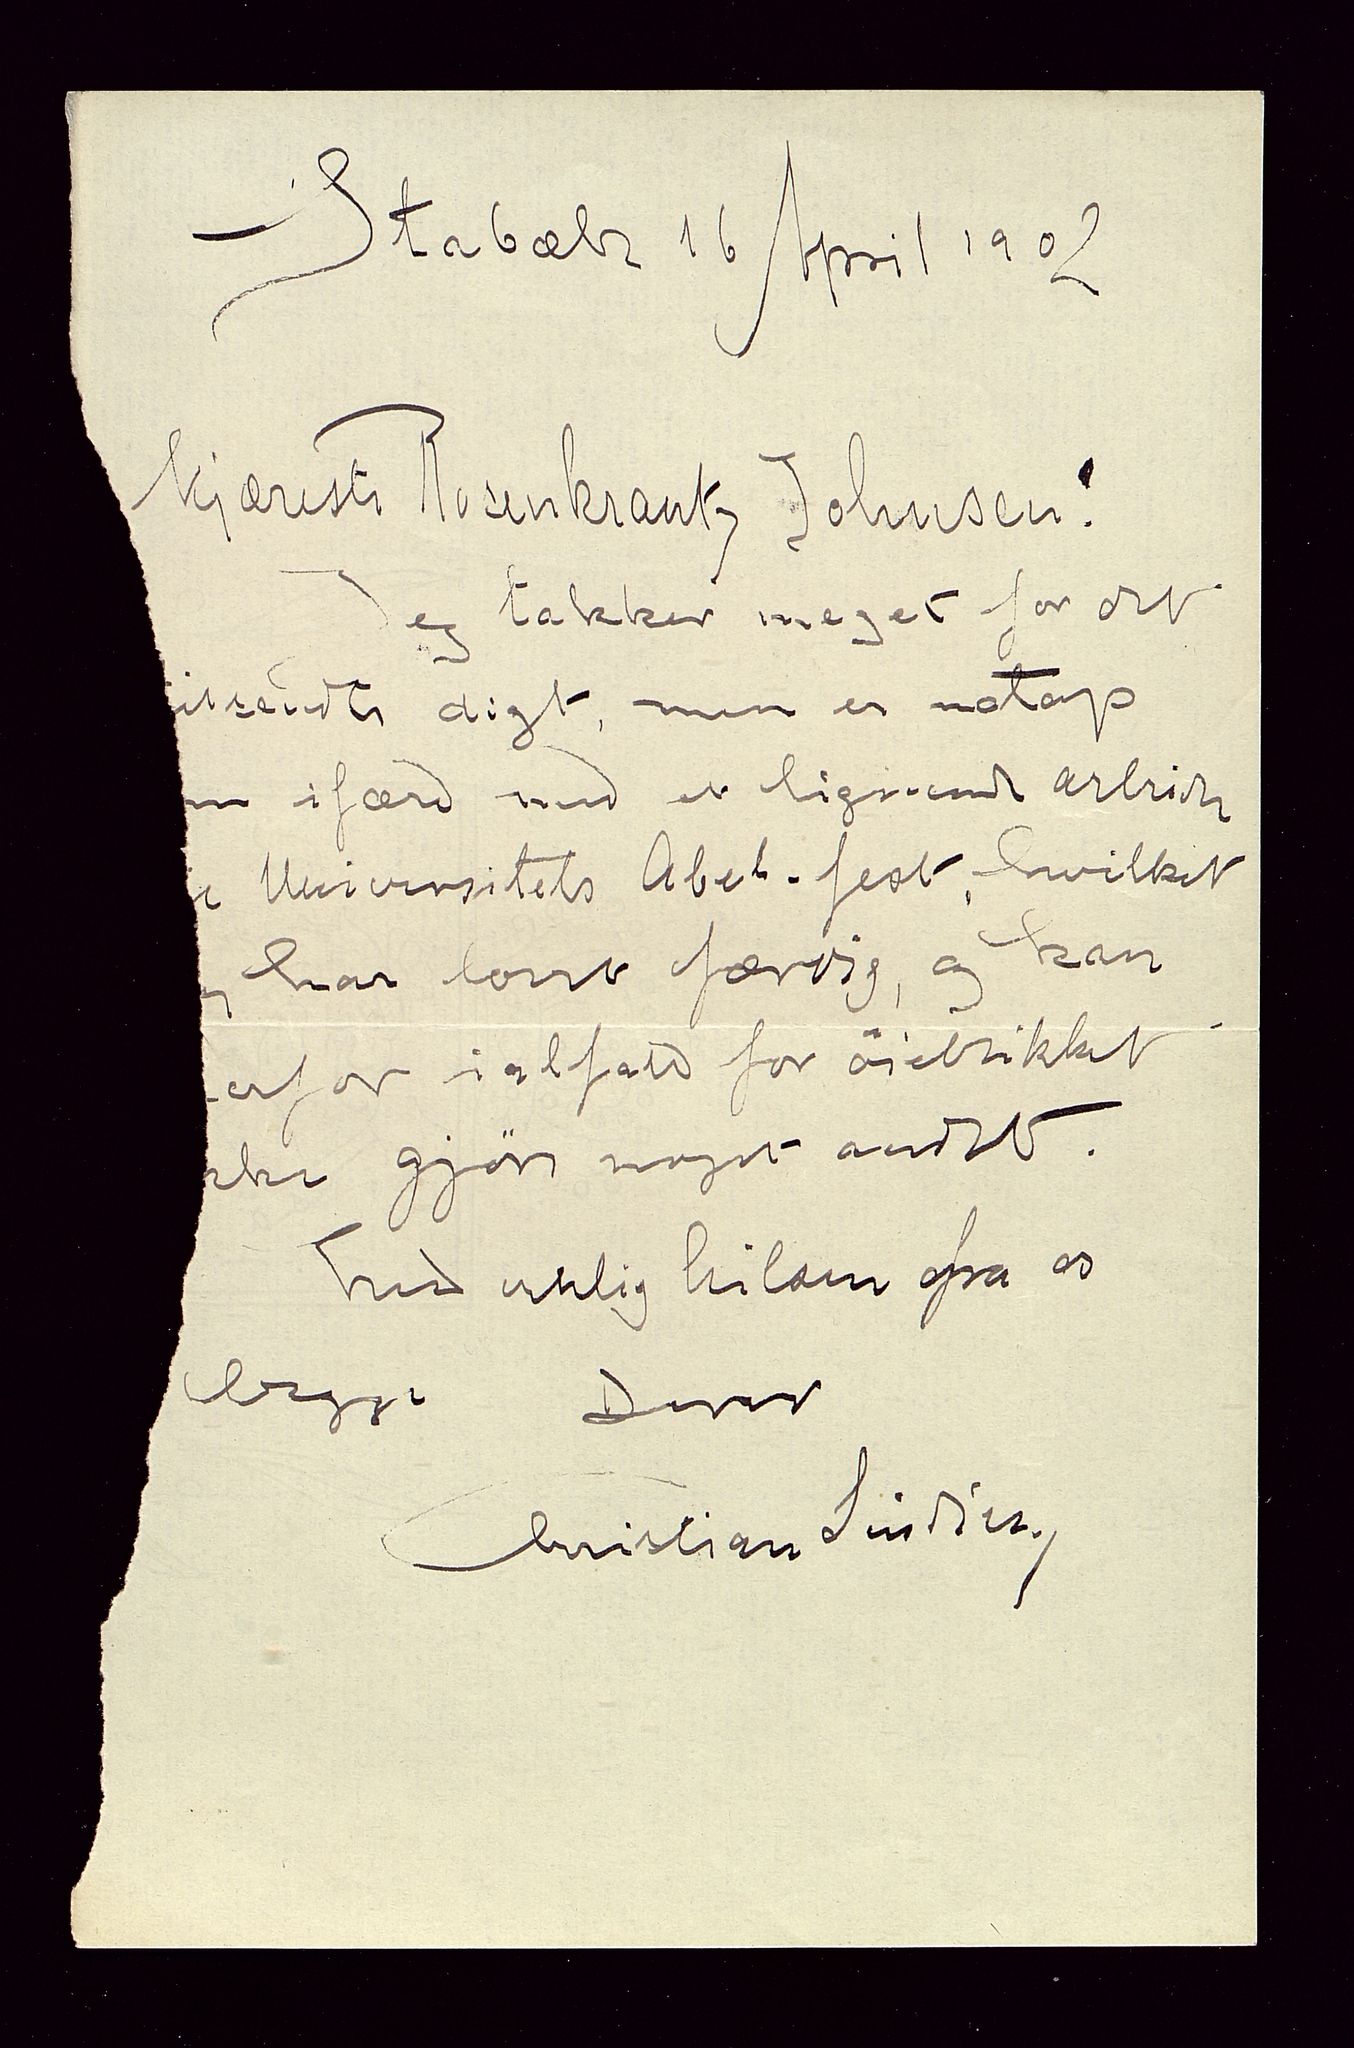 Stabæk 16 April 1902
Kjæreste Rosenkrantz Johnsen!
Jeg takker meget for det
ilsendte digt, men er netop
ifærd med et lignende arbeide
Universitets Abel-fest, hvilket
har lovet færdig, og kan
erfor ialfald for öieblikket
kke gjöre noget andet.
Med venlig hilsen fra os
begge Deres
Christian Sinding